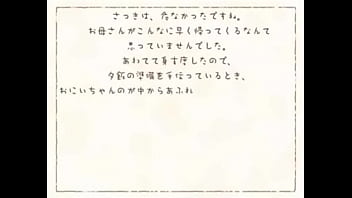 さっきは、危なかったですね。
お母さんがこんなに早く帰ってくるなんて
思っていませんでした。
あわてて身支度したので、
夕飯の準備を手伝っているとき、
おにいちゃんのが中からあふれ